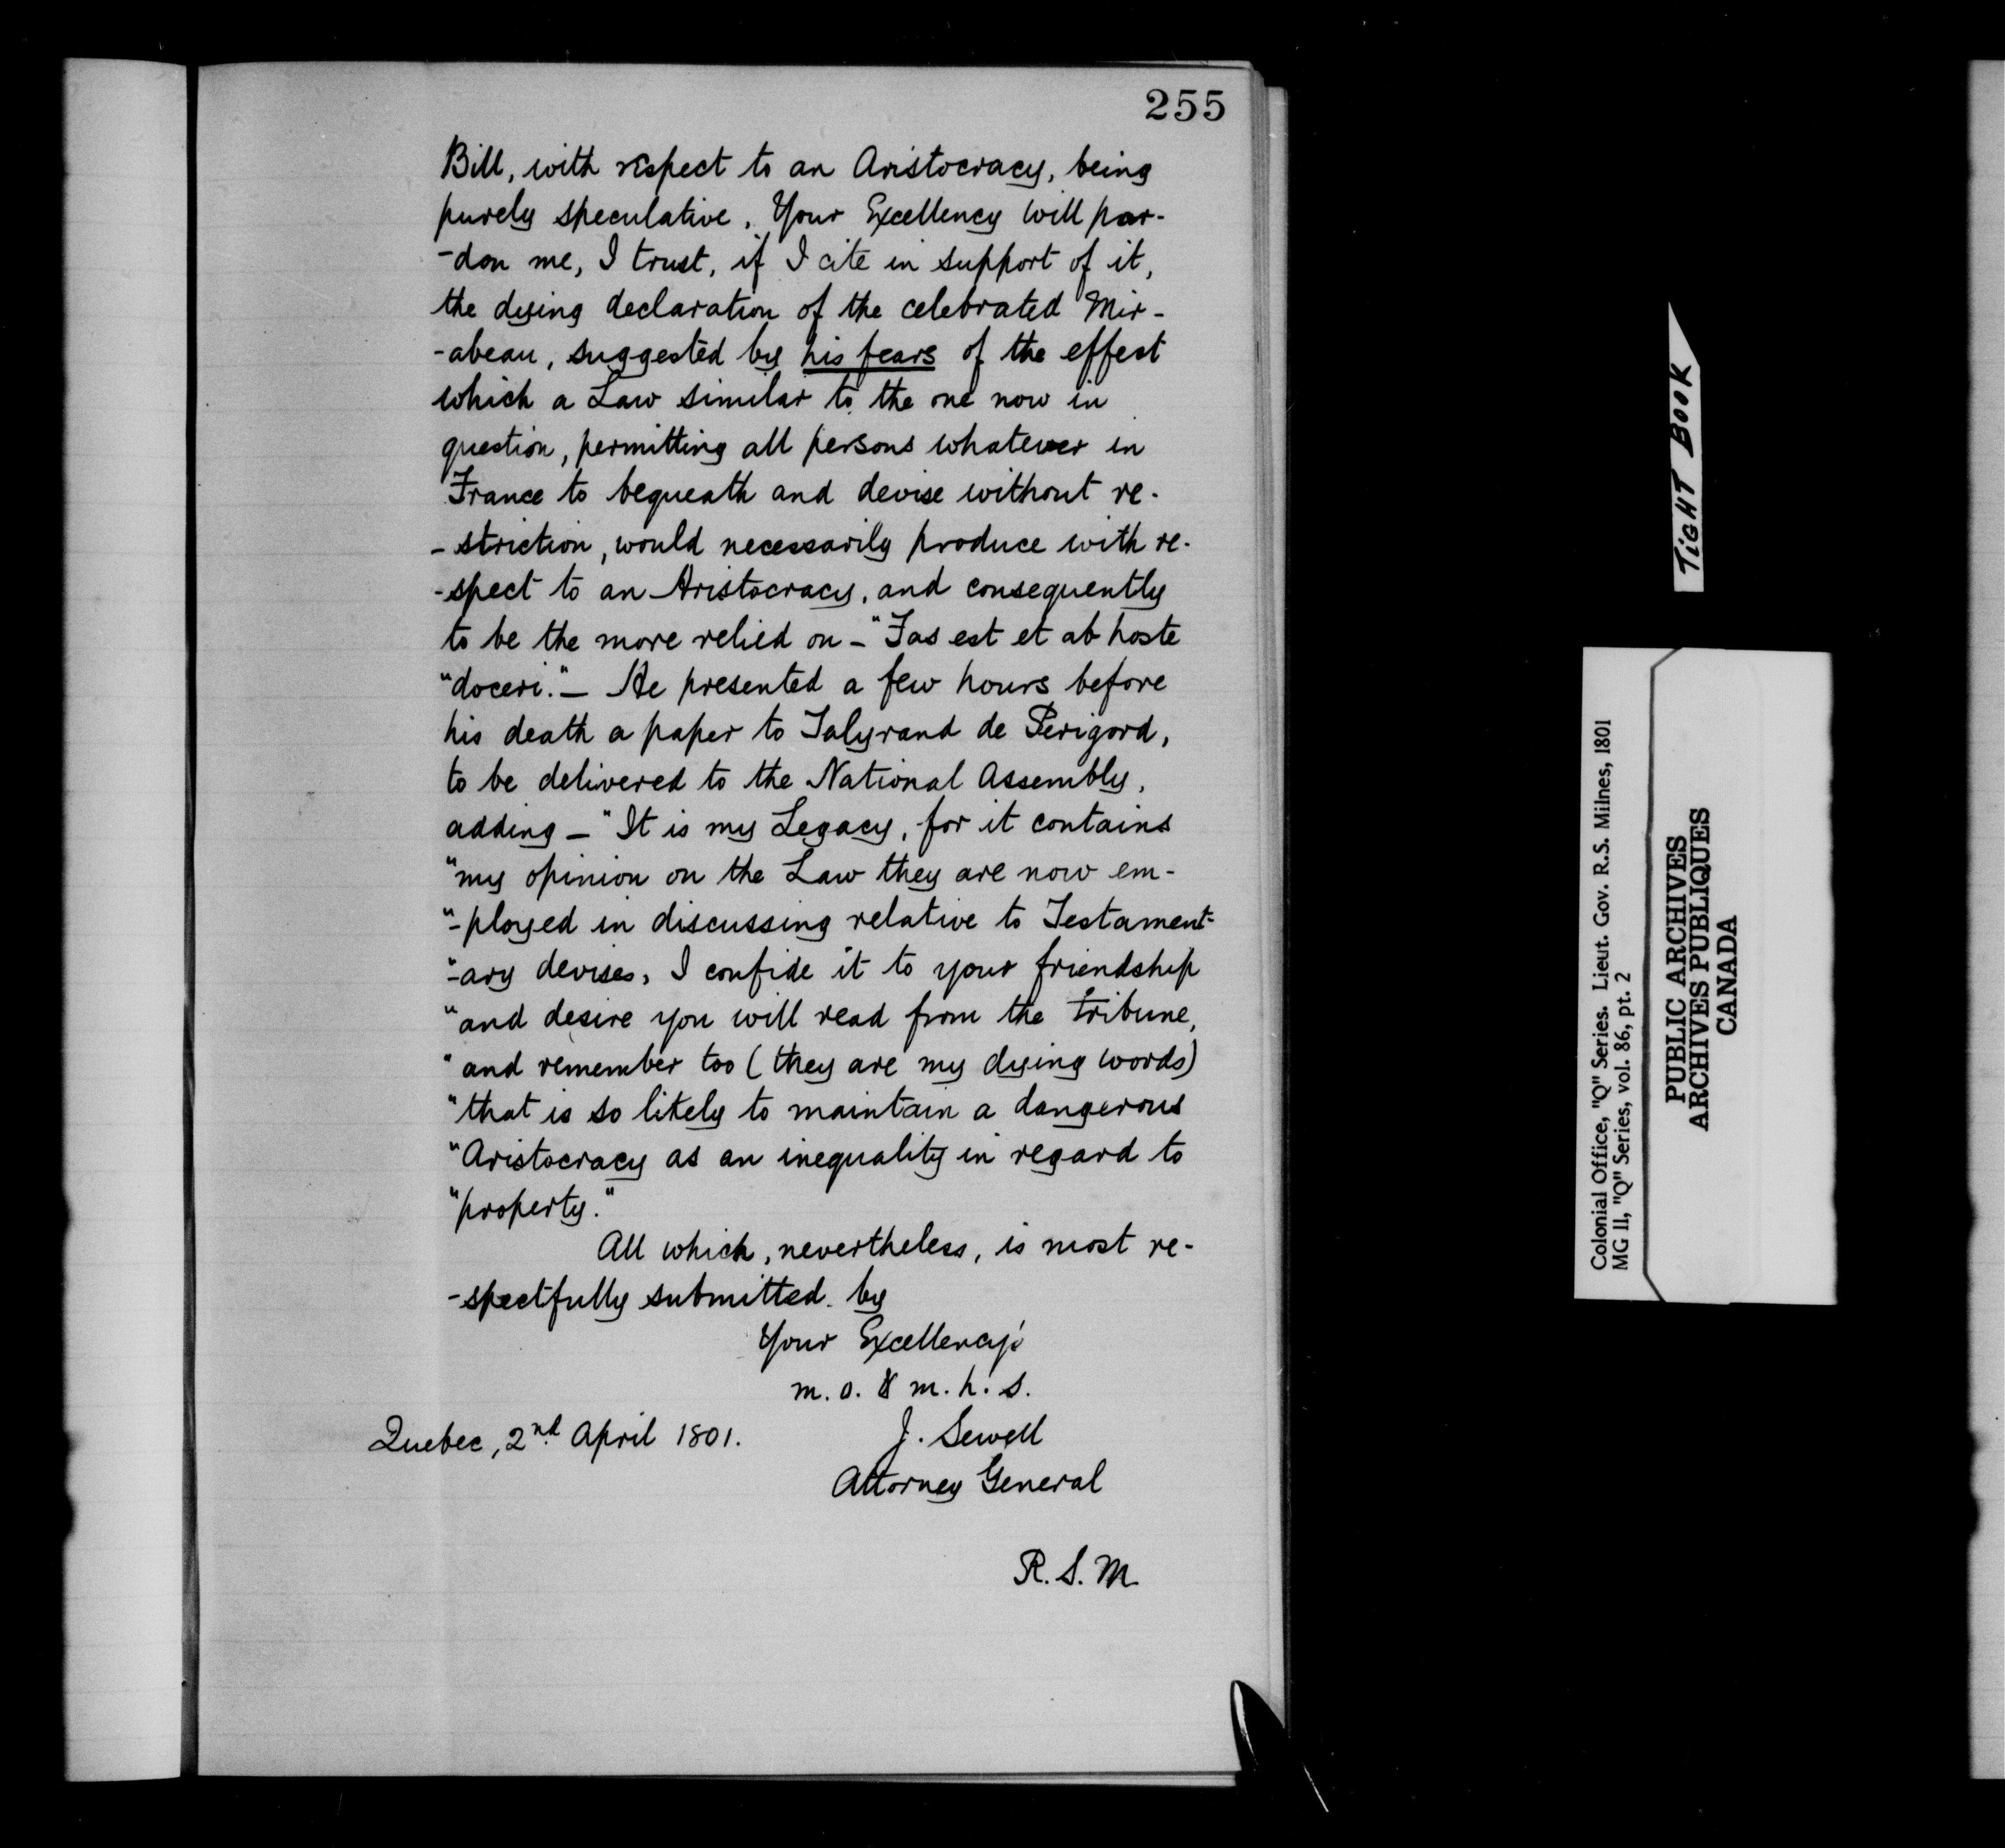 255
Bill, with respect to an Aristocracy, being
purely speculative, Your Excellency will par-
-don me, I trust, if I cite in support of it,
the dying declaration of the celebrated Mir-
-abeau, suggested by his fears of the effect
which a Law similar to the one now in
question, permitting all persons whatever in
France to bequeath and devise without re-
-striction, would necessarily produce with re-
-spect to an Aristocracy, and consequently
to be the more relied on - "Fas est et ab hoste
"doceri." - He presented a few hours before
his death a paper to Talyrand de Perigord,
to be delivered to the National Assembly,
adding - "It is my Legacy, for it contains
"my opinion on the Law they are now em-
"-ployed in discussing relative to Testament-
"-ary devises, I confide it to your friendship
"and desire you will read from the tribune,
"and remember too (they are my dying words)
"that is so likely to maintain a dangerous
"Aristocracy as an inequality in regard to
"property."
All which, nevertheless, is most re-
-spectfully submitted. by
Your Excellency's
m. o. & m. h. s.
Quebec, 2nd April 1801. J. Sewell
Attorney General
R. S. M.
TIGHT BOOK
Colonial Office, "Q" Series. Lieut. Gov. R.S. Milnes, 1801
MG 11, "Q" Series, vol. 86, pt. 2
PUBLIC ARCHIVES
ARCHIVES PUBLIQUES
CANADA